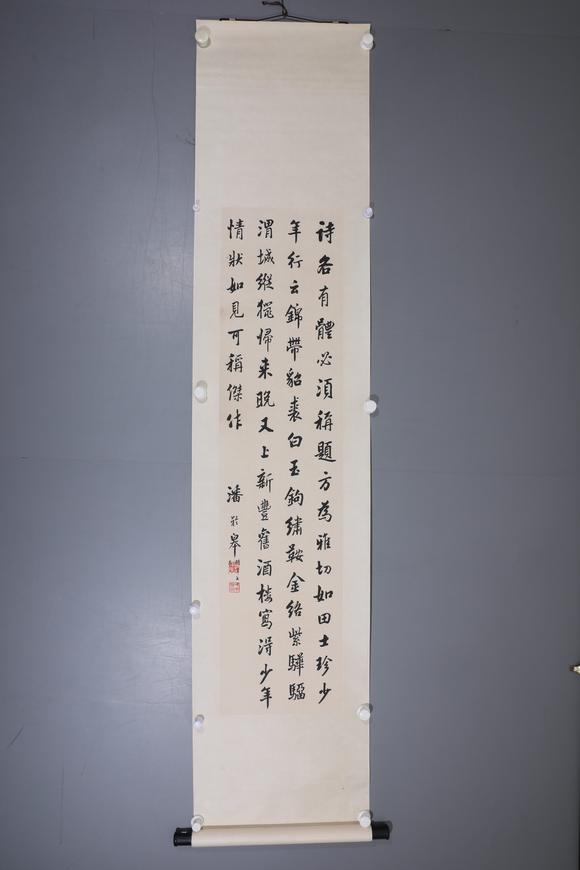 詩各有體必須稱題方為雅切如田士珍少
年行云錦帶貂裘白玉鉤繡鞍金絡紫驊騮
渭城縱獵歸来晩又上新豐舊酒樓寫得少年
情狀如見可稱傑作
潘齡皋